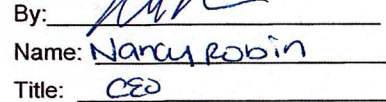 By:
Name: Nancy Robin
Title: CEO